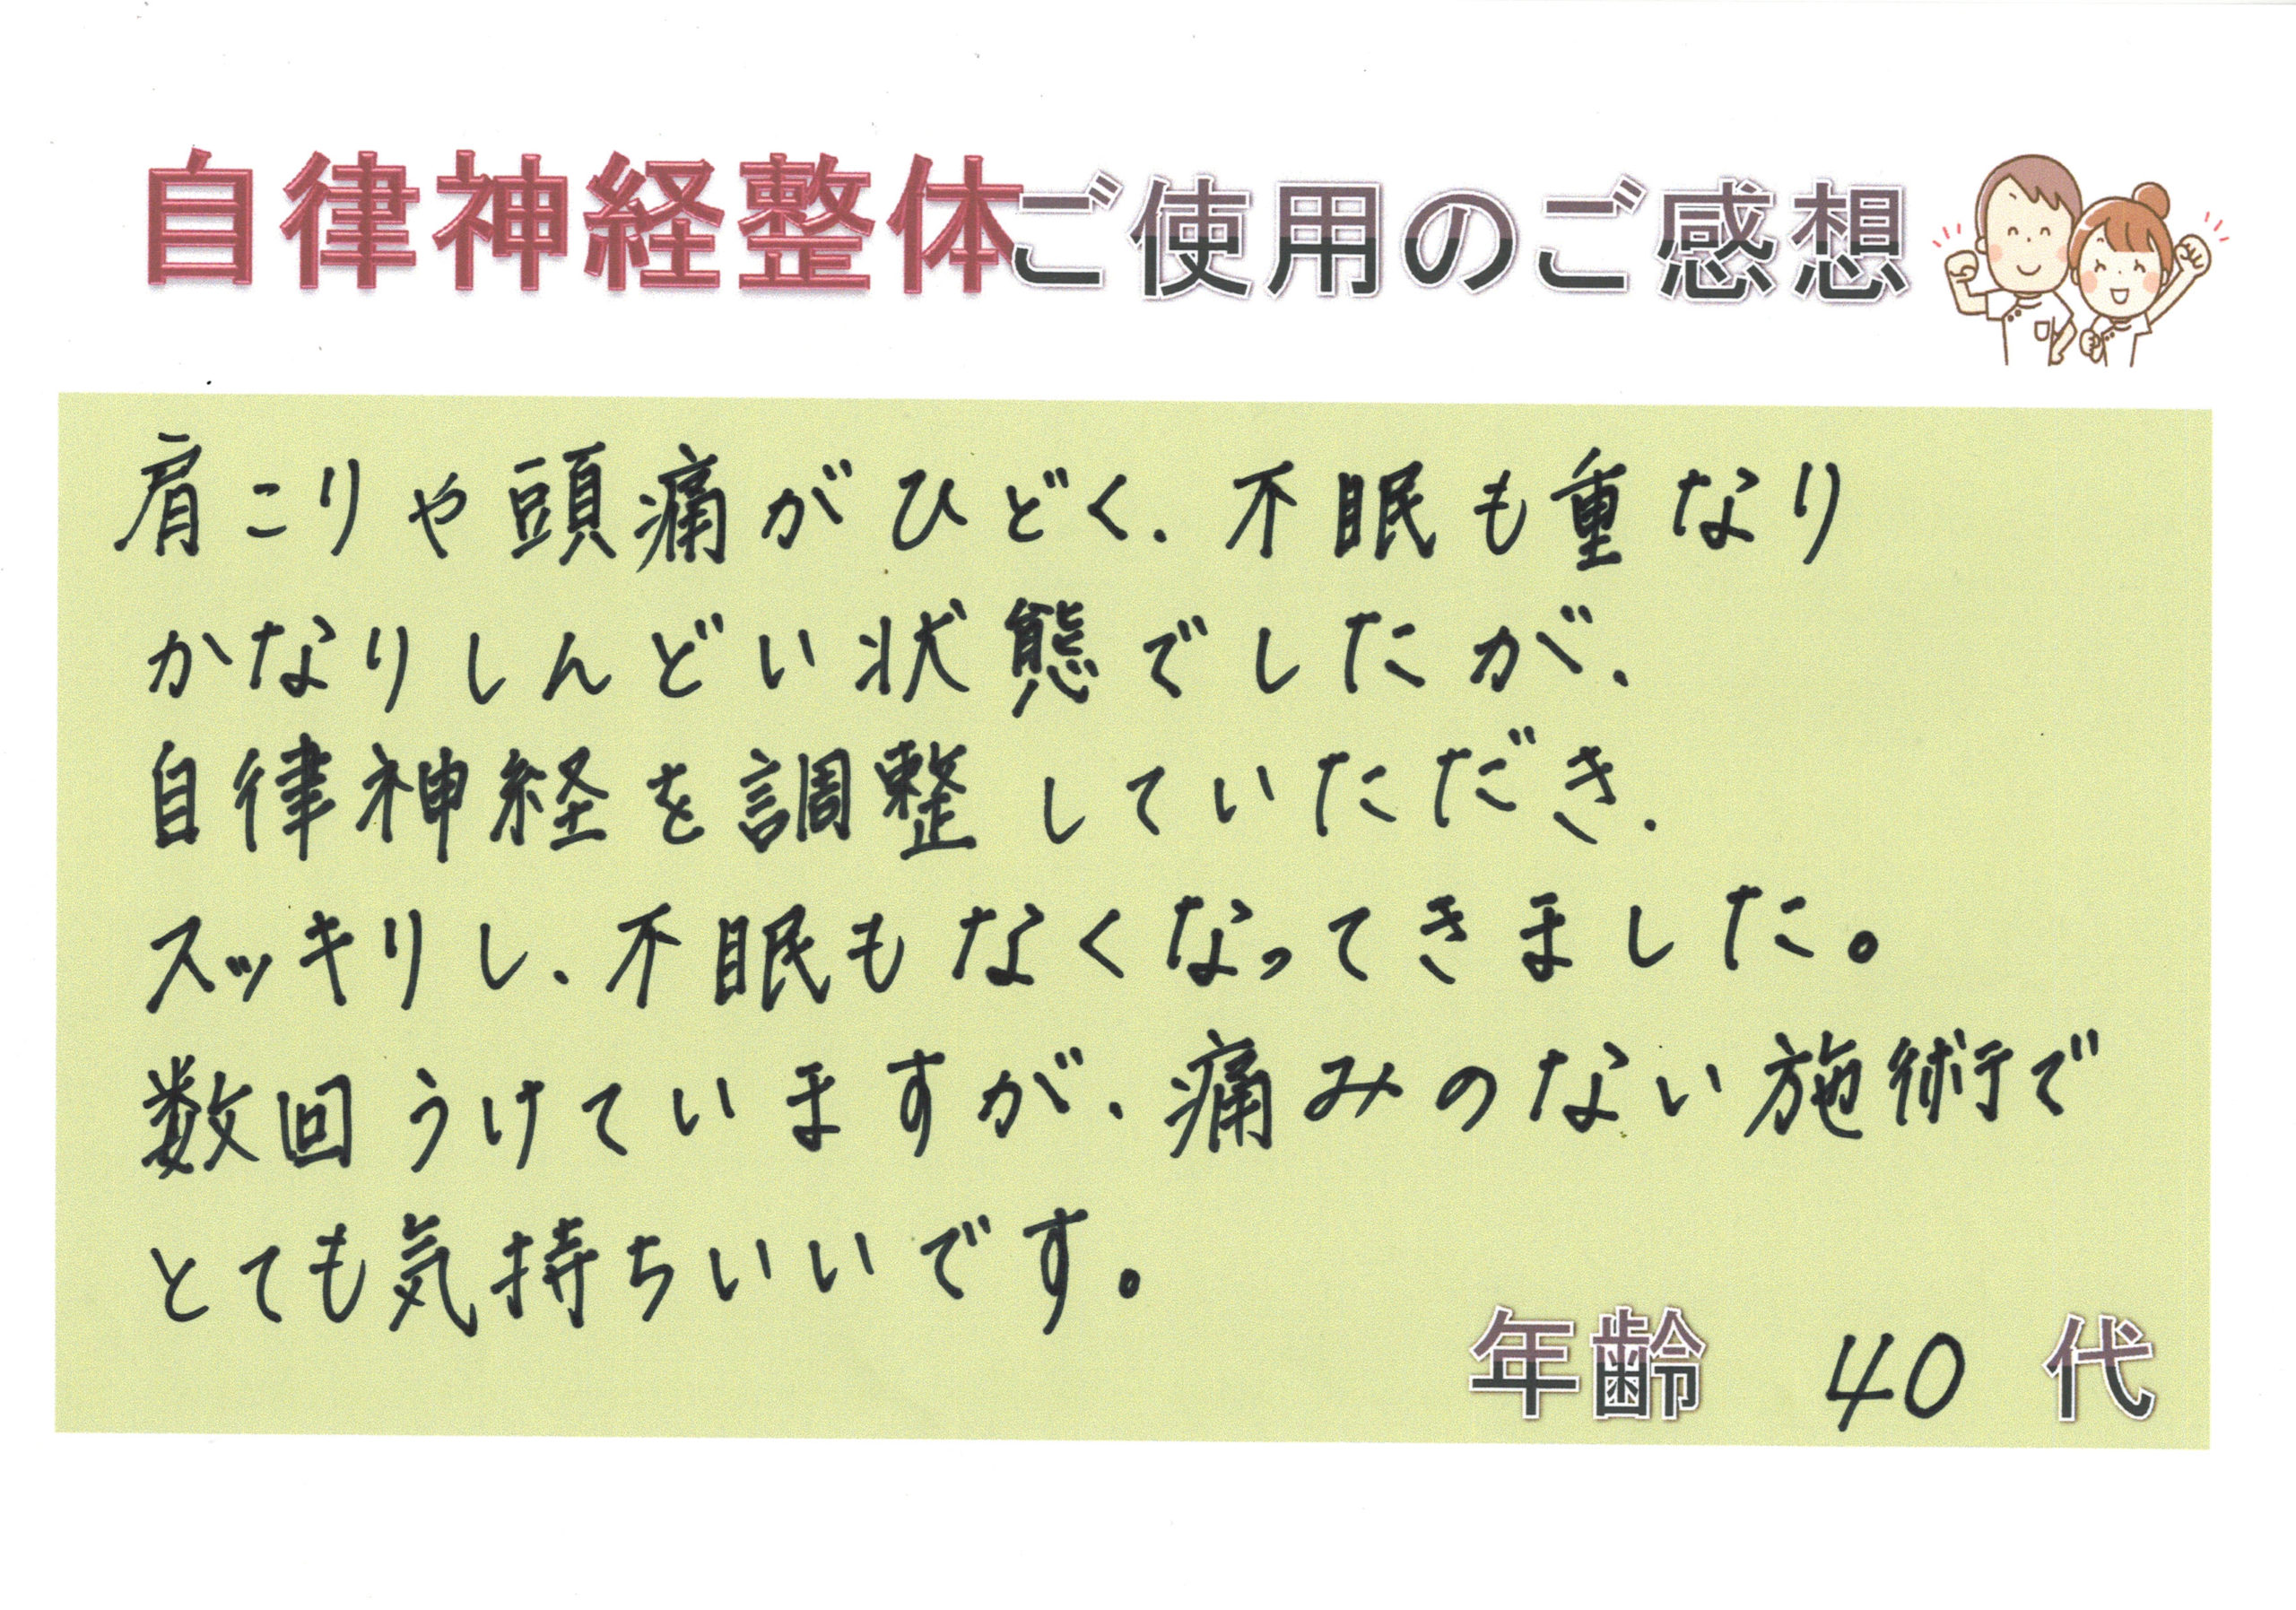 自律神経整体ご使用のご感想
肩こりや頭痛がひどく、不眠も重なり
かなりしんどい状態でしたが、
自律神経を調整していただき、
スッキリし、不眠もなくなってきました。
数回うけていますが、痛みのない施術で
とても気持ちいいです。
年齢 40 代